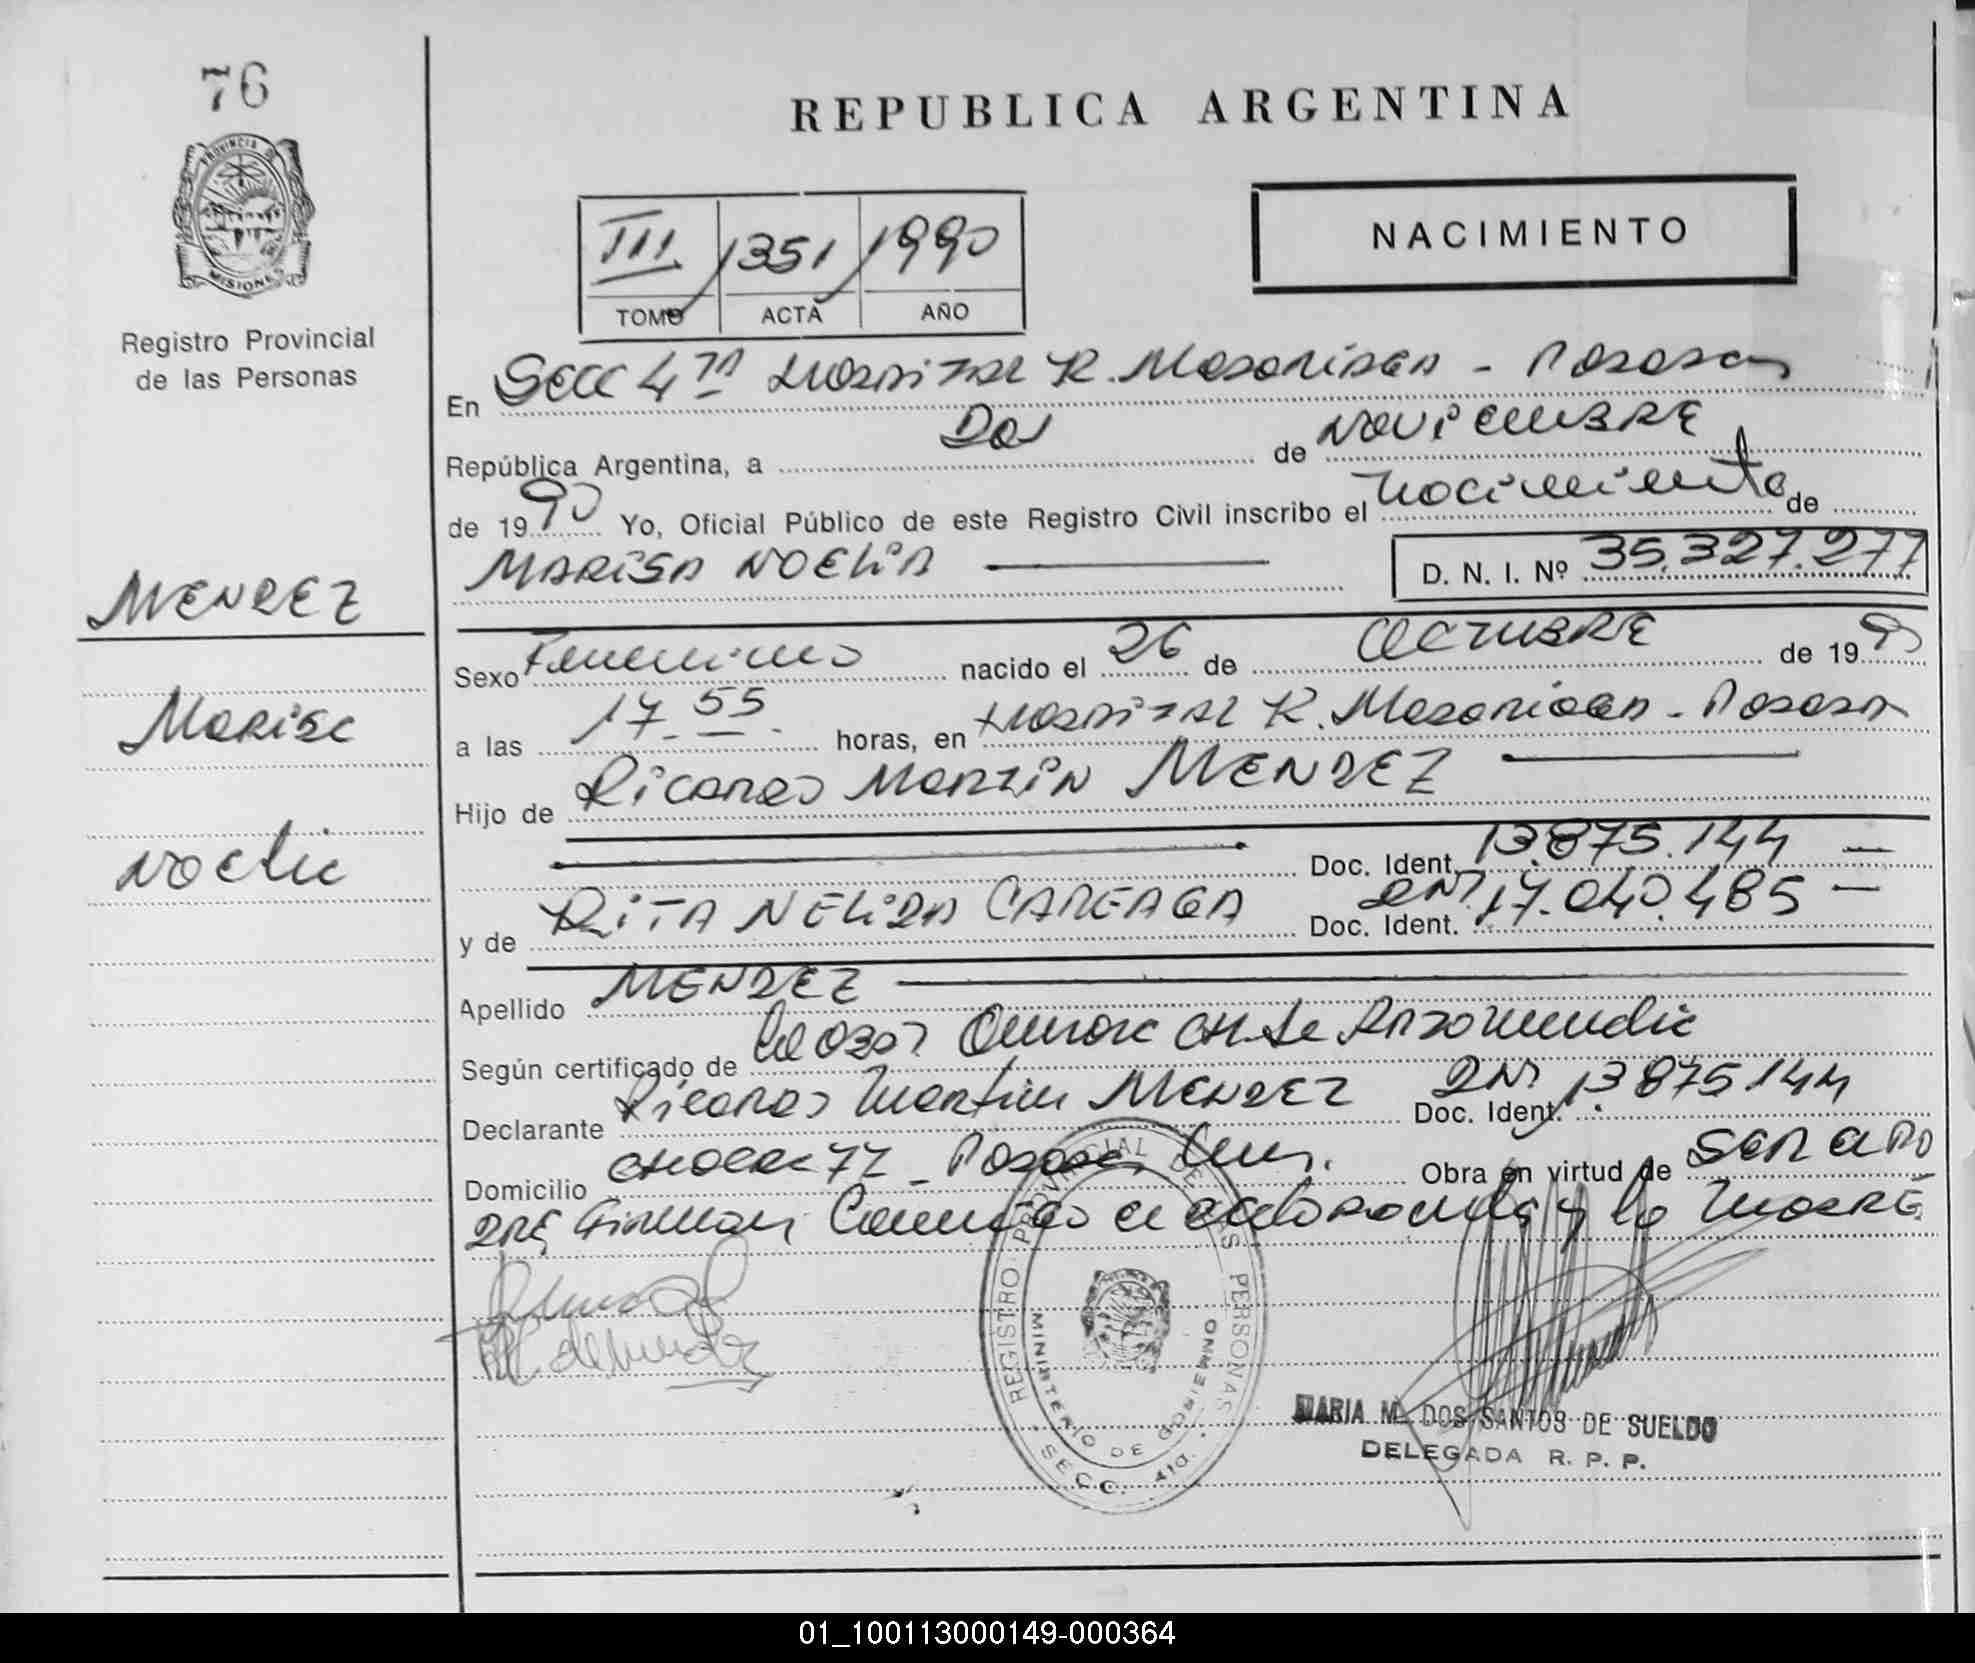 76
REPUBLICA ARGENTINA
PROVINCIA DE
MISIONES
Registro Provincial
de las Personas
III 1351 1990
TOMO ACTA AÑO
NACIMIENTO
En Secc 4ta Hospital R. Madariaga - Posadas
República Argentina, a Dos de Noviembre
de 1990 Yo, Oficial Público de este Registro Civil inscribo el nacimiento de
MARISA NOELIA D. N. I. Nº 35.327.277
MENDEZ
Marisa
Noelia
Sexo Femenino nacido el 26 de OCTUBRE de 1990
a las 17.55 horas, en Hospital R. Madariaga - Posadas
Hijo de Ricardo Martin MENDEZ
Doc. Ident. 13.875.144
y de RITA NELIDA CAREAGA Doc. Ident. DNI 17.040.485
Apellido MENDEZ
Según certificado de
Declarante Ricardo Martin MENDEZ Doc. Ident. DNI 13875144
Domicilio 77 - Posadas Obra en virtud de ser el pa
dre Firman y la madre
REGISTRO PROVINCIAL DE LAS PERSONAS
MINISTERIO DE GOBIERNO
SECC. 4ta.
MARIA M. DOS SANTOS DE SUELDO
DELEGADA R. P. P.
01_100113000149-000364